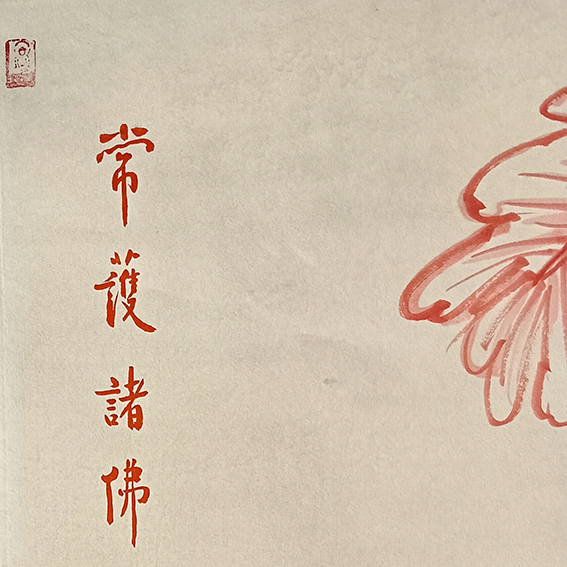 常護諸佛